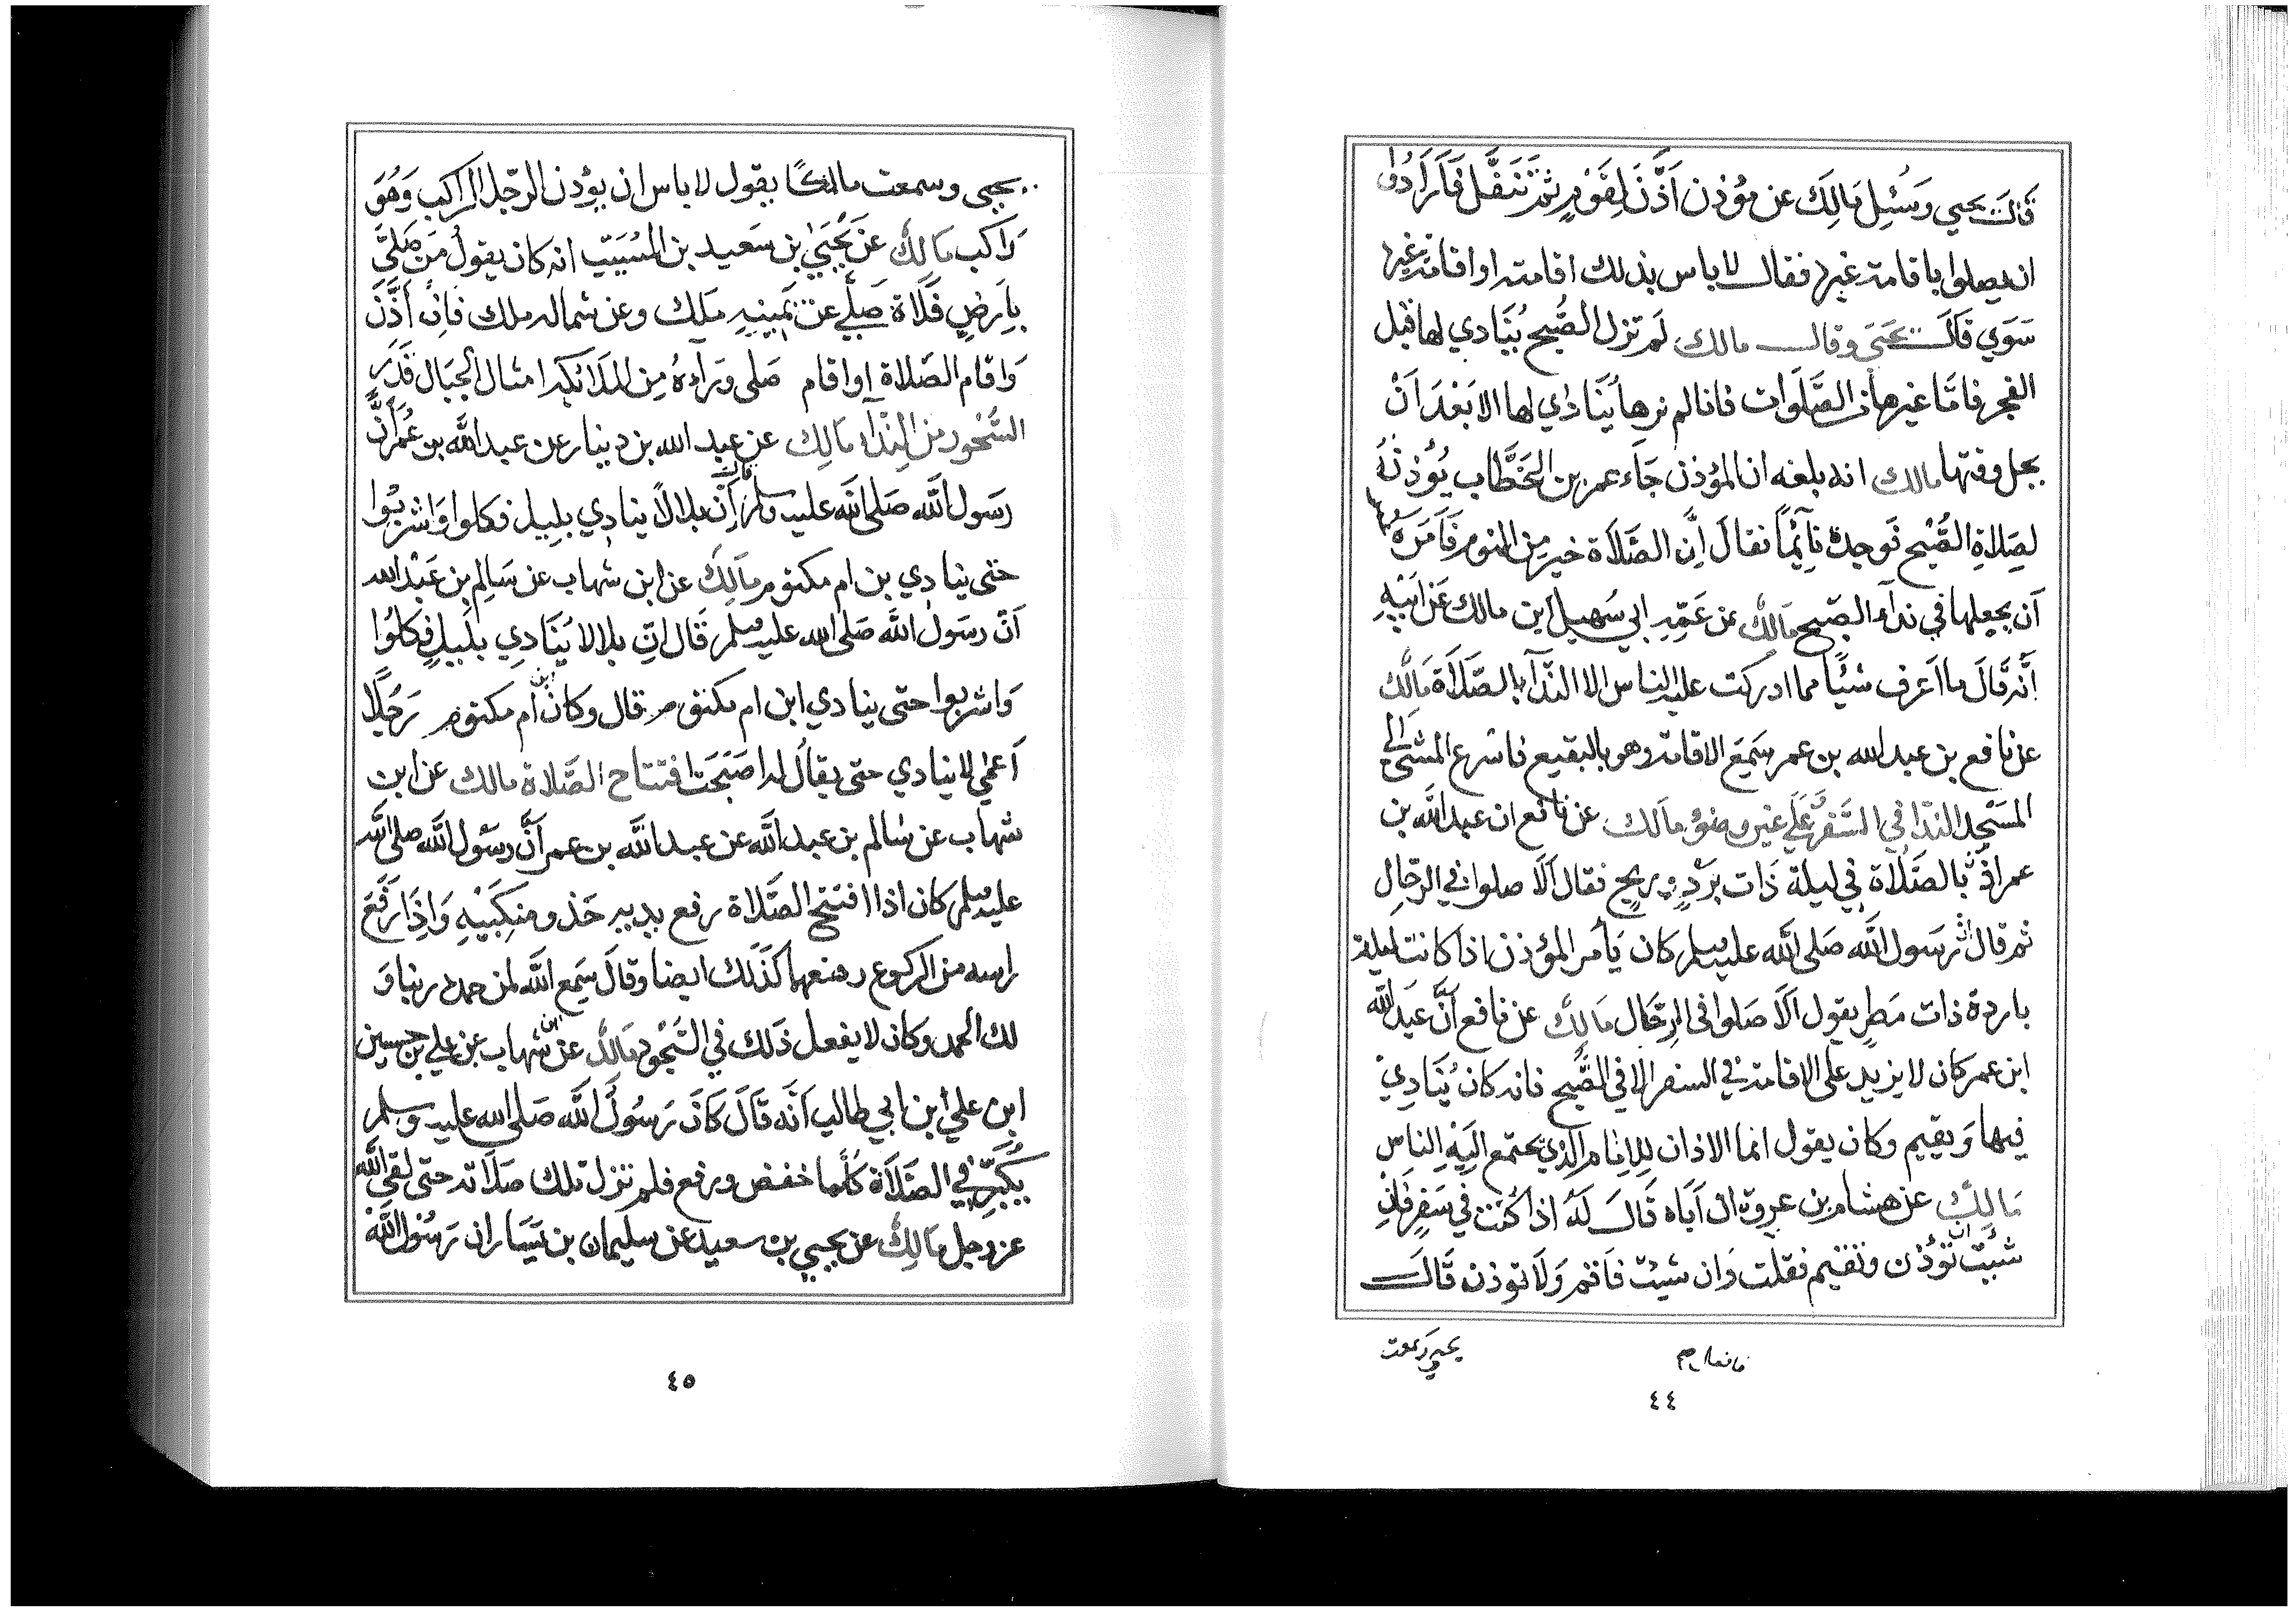 قَالَ يحيي وَسُئِل مَالِك عن مؤذن اَذَّنَ لِقَوْمٍ ثمَّ تَنَفَّل فَاَرَادُوا
ان يصلوا باقامة غيره فقال لا باس بذلك اقامته او اقامة غيره
سَوَي قَالَ يحيَي وقال مالك لَم تزل الصُّبح يُنَادي لها قبل
الفجر فامَّا غيرها من الصَّلَوات فانا لم نرها يُنَادَي لها الا بَعْدَ اَنْ
يحل وقتها مالك انه بلغه ان المؤذن جَاء عمر بن الخَطَّاب يُؤذنُهُ
لصَلاةِ الصُّبْح فَوجده نَآئِماً فقالَ اِنَّ الصَّلاَة خير مِن النوم فَاَمَرَهُ عمر
اَن يجعلها في نداء الصّبح مَالك عن عَمّهِ ابي سُهيل ابن مالك عَن اَبيْهِ
اَنَّه قَالَ ما اَعرف شَيْئًا مما ادركت عليه الناس الا النِّدَآء بالصَّلاَة مَالِك
عن نافع بن عبد الله بن عمر سَمِعَ الاقامة وهو بالبقيع فاسْرع المَشْي الي
المَسْجِد النّدا في السَّفر عَلَي غير وضوء مالك عن نافع ان عبد الله بن
عمر اذن بالصَّلاة في ليلة ذَات بَرْدٍ وريح فقال اَلَا صلوا في الرّحَال
ثم قال ان رَسول الله صَلى الله عليه وسلم كان يَأمر المؤذن اذا كانت ليلة
باردة ذات مَطرٍ يقول اَلَا صَلوا في الرِّحَال مَالك عن نافع اَنَّ عَبد الله
ابن عمر كان لا يزيد على الاقامة في السفر الا في الصُّبح فانه كان يُنَادِيْ
فيها وَيقيم وكان يقول انما الاذان للاِمَام الّذي يجتمع اليَهِ الناس
مَالِك عن هشام بن عروة ان اَبَاه قَالَ لَهُ اذا كُنْتَ في سَفرٍ فَاِن
شئتَ ان تُؤذن وتقيم فقلت وَان شئِت فَاقم وَلَا توذن قَالَ
يحيي وسمعت
٤٤
يحيى وسمعت مالكًا يقول لا باس ان يؤذن الرّجل الراكب وَهُوَ
رَاكب مَالك عَن يَحْيَيٰ بن سَعيد بن المُسَيَّب انه كان يقولُ مَنْ صَلَّي
بِاَرضِ فَلَاة صَلَّي عن يَمينِهِ مَلَك وعن شماله ملك فَاِن اَذَّنَ
وَاقام الصَّلاة او اقام صَلى وَرَاءهُ مِن المَلائكة امثال الجِبَال قَدر
السَّحور من النِّدَاء مَالِك عن عبد الله بن دينار عن عبد الله بن عُمَر اَنَّ
رَسول اللَّه صَلى اللَّه عليه وسلم قال اِنَّ بلالاً ينادي بِليل فكلوا وَاشربُوا
حتى ينادي بن ام مكتوم مَالِك عن ابن شهاب عن سَالم بن عَبْد الله
اَنّ رسَول الله صَلى الله عليه وسلم قَال اِنّ بلالا يُنَادي بلَيلٍ فكلُوا
وَاشربوا حتى ينادي ابن ام مكتوم قال وكان ابن اُم مكتوم رَجُلًا
اَعمٰي لا ينادي حتى يقالُ له اَصْبَحْتَ افتتاح الصَّلاة مالك عن ابن
شهاب عن سَالم بن عبد الله عن عبد الله بن عمر اَنَّ رسَول الله صلى الله
عليه وسلم كان اذا افتتح الصَّلاة رفع يديه حَذو منكَبَيْهِ وَاِذَا رَفَعَ
راسه من الركوع رفعهما كَذَلك ايضا وقالَ سَمِع الله لمن حمده ربنا وَ
لك الحمد وكان لا يفعل ذَلك في السُّجود مَالك عن ابن شهاب عن علي بن حسين
ابن علي ابن ابي طالب اَنَّه قَالَ كَانَ رَسُولُ الله صَلى الله عليه وسلم
يُكَبِّر في الصَّلاَة كلَّما خفض ورفع فلم تزل تلك صَلَاته حتى لقي الله
عز وجل مَالِك عن يحيي بن سعيد عن سليمان بن يَسَار ان رَسُول الله
٤٥